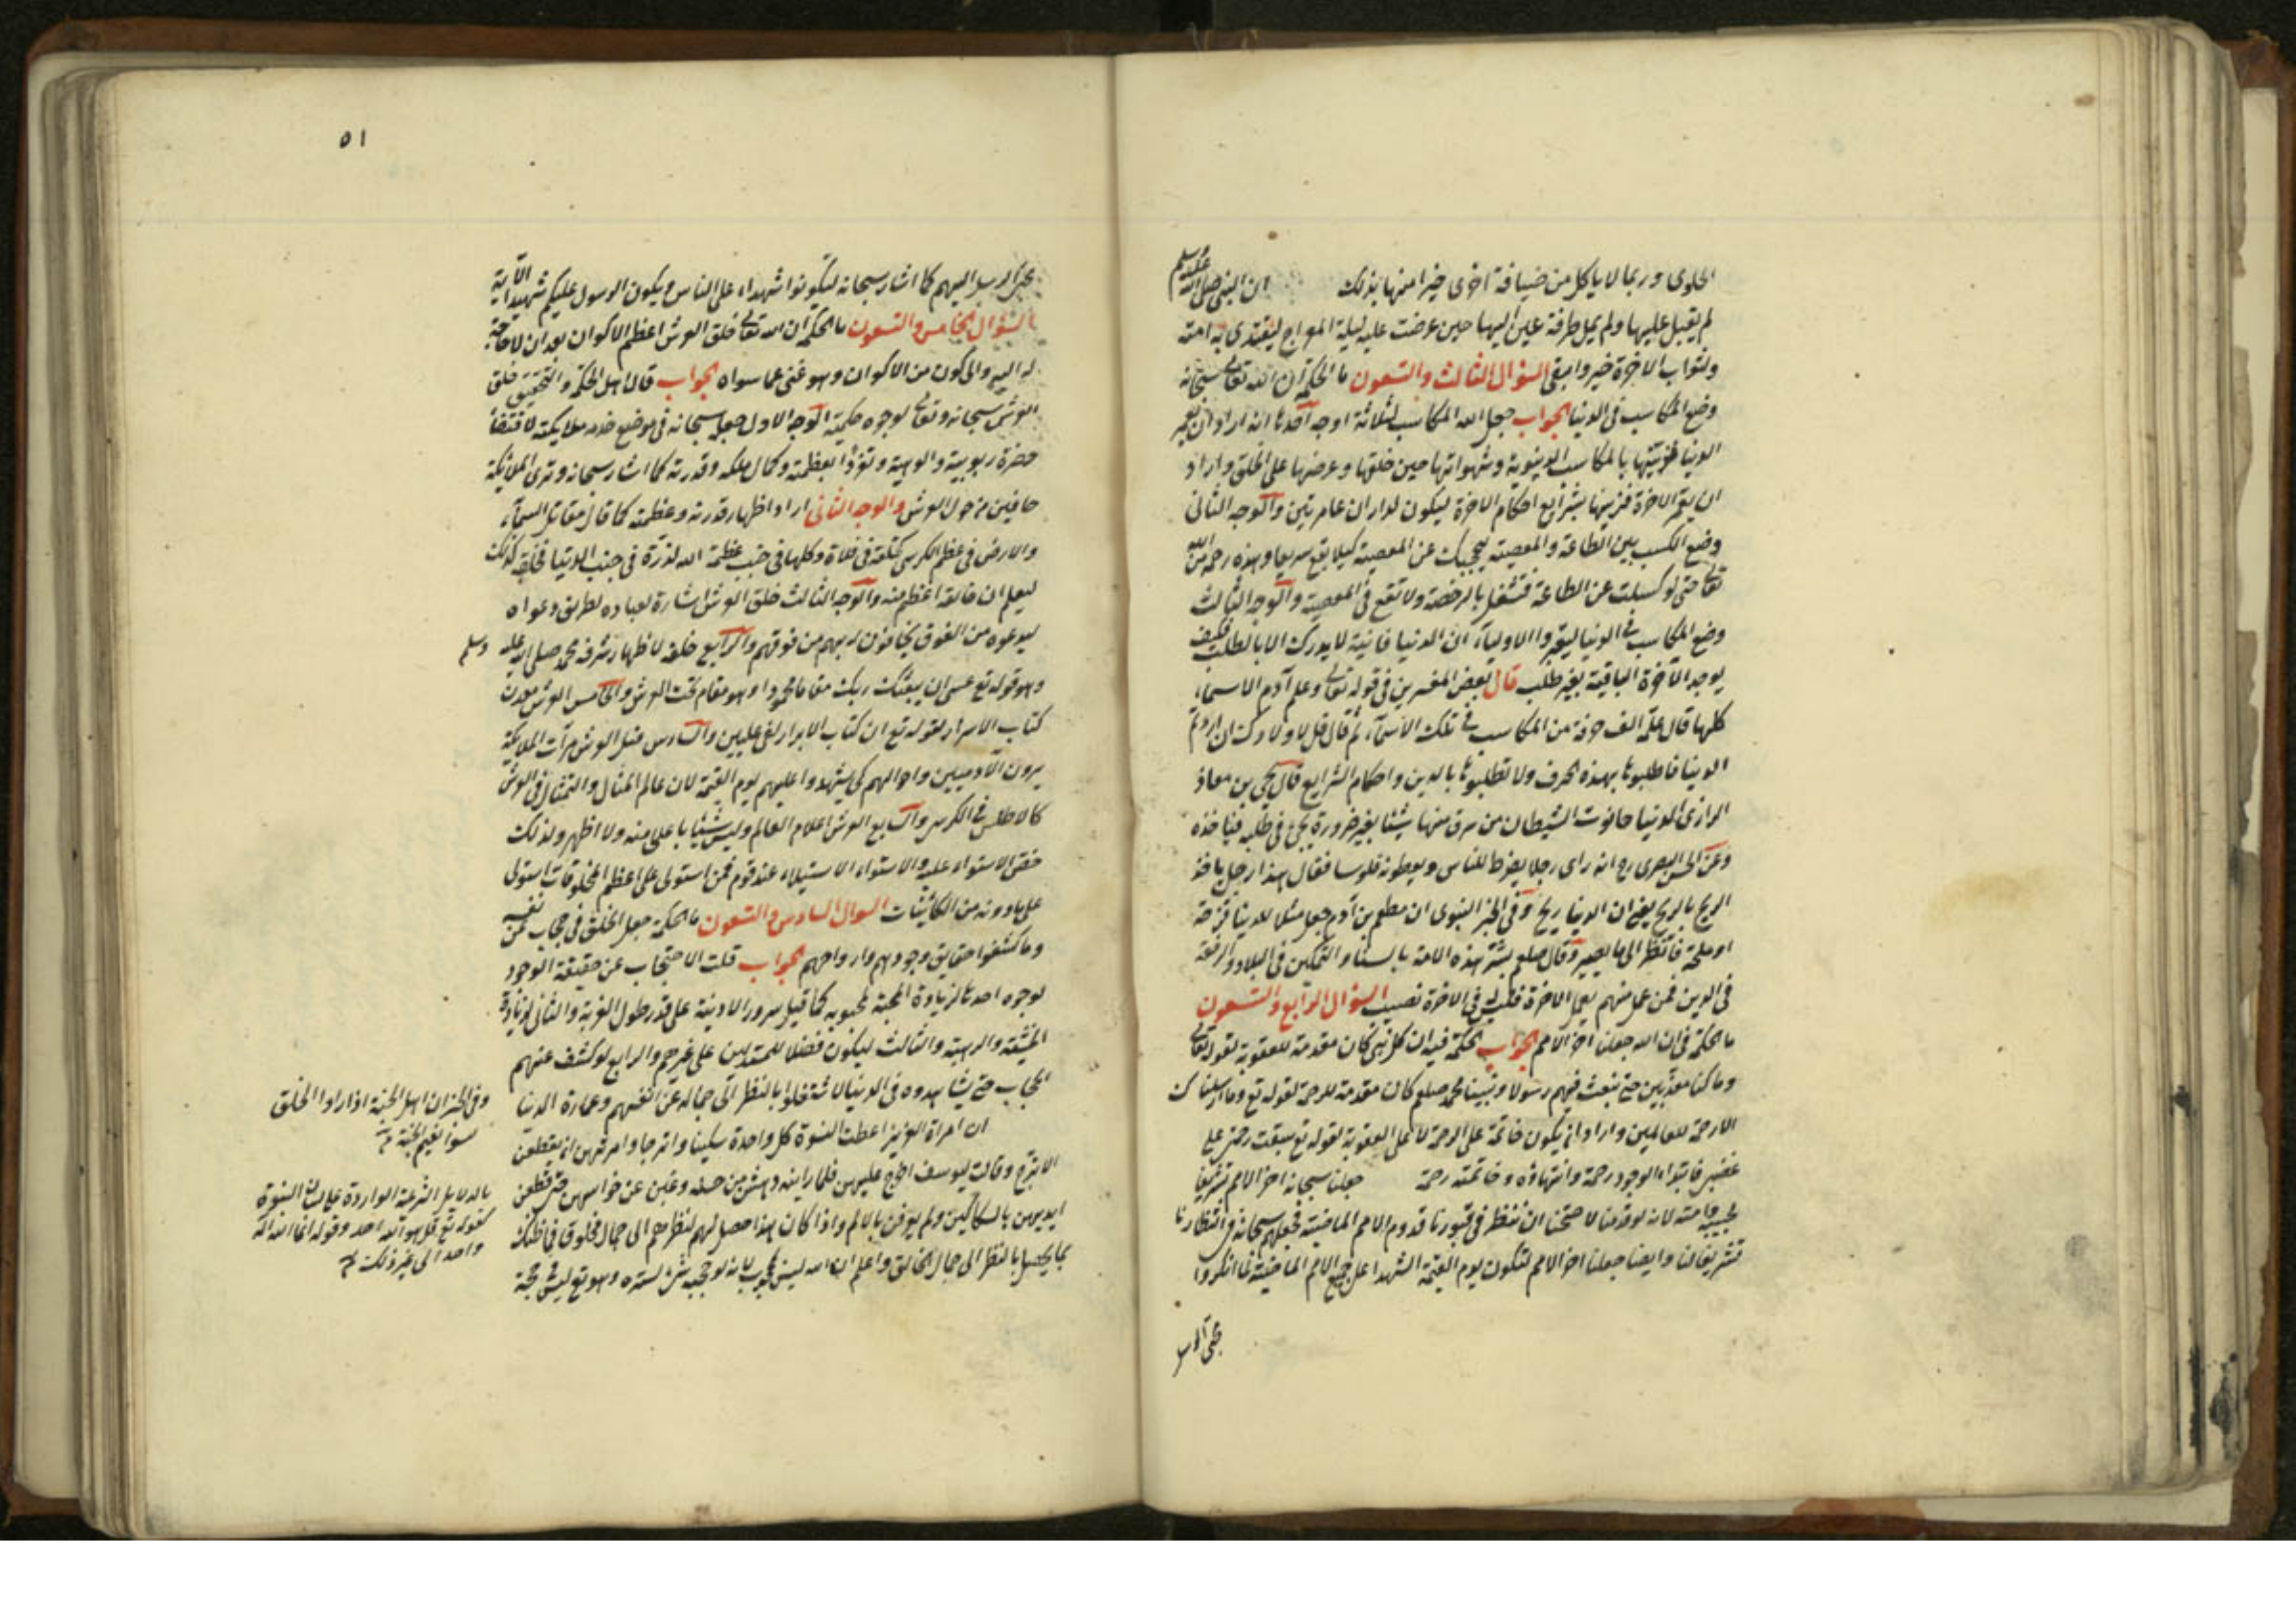 الحلوى وربما لا ياكل من ضيافة اخرى خيرا منها بذلك ان النبى صلى الله عليه وسلم
لم يقبل عليها ولم يمل طرفة عين اليها حين عرضت عليه ليلة المعراج ليقتدى به امته
ولثواب الاخرة خير وابقى السؤال الثالث والتسعون ما الحكمة ان الله تعالى سبحانه
وضع المكاسب فى الدنيا الجواب جعل الله المكاسب لثلاثة اوجه احدها انه اراد ان يعمر
الدنيا فزينها بالمكاسب الدنيوية وشهواتها حين خلقها وعرضها على الخلق واراد
ان يعمر الاخرة فزينها بشرايع احكام الاخرة ليكون لداران عامرتين والوجه الثانى
وضع الكسب بين الطاعة والمعصية ليحجبك عن المعصية كيلا يقع سريعا وهذه رحمة من الله
تعالى حتى لو كسلت عن الطاعة فتشغل بالرخصة ولا تقع فى المعصية والوجه الثالث
وضع المكاسب فى الدنيا ليعتبروا الاولياء ان الدنيا فانية لا يدرك الا بالطلب فكيف
يوجد الآخرة الباقية بغير طلب قال بعض المفسرين فى قوله تعالى وعلم آدم الاسماء
كلها قال علم الف حرفة من المكاسب فى تلك الاسماء ثم قال قل لاولادك ان اردتم
الدنيا فاطلبوها بهذه الحرف ولا تطلبوها بالدين واحكام الشرايع قال يحيى بن معاذ
الرازى الدنيا حانوت الشيطان من سرق منها شيئا بغير ضرورة يجئ فى طلبه فياخذه
وعن الحسن البصرى رح انه راى رجلا يضرط للناس ويعطونه فلوسا فقال هذا رجل ياخذ
الريح بالريح يعنى ان الدنيا ريح وفى الخبر النبوى ان مطعم بن آدم جعل مثلا للدنيا قزحه
او ملحه فانظر الى ما يصير وقال صلعم بشر هذه الامة بالسنا والتمكين فى البلاد والرفعة
فى الدين فمن عمل منهم بعمل الاخرة فليس فى الاخرة نصيب السؤال الرابع والتسعون
ما الحكمة فى ان الله جعلنا آخر الامم الجواب الحكمة فيه ان كل نبى كان مقدمة للعقوبة لقوله تعالى
وما كنا معذبين حتى نبعث فيهم رسولا ونبينا محمد صلعم كان مقدمة للرحمة لقوله تع وما ارسلناك
الا رحمة للعالمين واراد ان يكون خاتمة على الرحمة لا على العقوبة لقوله تع سبقت رحمتى على
غضبى فابتداء الوجود رحمة وانتهاؤه وخاتمته رحمة جعلنا سبحانه اخر الامم تشريفا
لحبيبه وامته لانه لو قدمنا لاحتجنا ان ننظر فى قبورنا قدوم الامم الماضية فجعلهم سبحانه فى انتظارنا
تشريفا لنا وايضا جعلنا اخر الامم لنكون يوم القيمة الشهدا على جميع الامم الماضية لما انكروا
مجئ الرسل
٥١
مجئ الرسل اليهم كما اشار سبحانه ليكونوا شهداء على الناس ويكون الرسول عليكم شهيدا الآية
السؤال الخامس والتسعون ما الحكمة ان الله تعالى خلق العرش اعظم الاكوان بعد ان لا حاجة
له اليه والى كون من الاكوان وهو غنى عما سواه الجواب قال اهل الحكمة والتحقيق خلق
العرش سبحانه وتعالى لوجوه حكمية الوجه الاول جعله سبحانه فى موضع خدمه ملايكته لاقتضاء
حضرة ربوبية والوهية وتفردا بعظمته وكمال ملكه وقدرته كما اشار سبحانه وترى الملايكة
حافين من حول العرش والوجه الثانى اراد اظهار قدرته وعظمته كما قال مقاتل السماء
والارض فى عظم الكرسى كحلقة فى فلاة وكلها فى جنب عظمة الله لذرة فى جنب الدنيا فخلقه كذلك
ليعلم ان خالقه اعظم منه والوجه الثالث خلق العرش اشارة لعباده لطريق دعواه
ليدعوه من الفوق يخافون ربهم من فوقهم والرابع خلقه لاظهار شرف محمد صلى الله عليه وسلم
وهو قوله تع عسى ان يبعثك ربك مقاما محمودا وهو مقام تحت العرش والخامس العرش معدن
كتاب الاسرار لقوله تع ان كتاب الابرار لفى عليين والسادس مثل العرش مرآت الملايكة
يرون الآدميين واحوالهم كى يشهدوا عليهم يوم القيمة لان عالم المثال والتمثال فى العرش
كالاطلس فى الكرسى والسابع العرش اعلام العالم وليس شيئا باعلى منه ولا اظهر ولذلك
خص الاستواء عليه والاستواء الاستيلاء عند قوم فمن استولى على اعظم المخلوقات استولى
على ما دونه من الكائنات السوال السادس والتسعون ما الحكمة جعل الخلق فى حجاب عن نفسه
وما كشفوا حقايق وجودهم وارواحهم الجواب قلت الاحتجاب عن حقيقة الوجود
لوجوه احدها لزيادة المحبة لمحبوبه كما قيل سرور الاوبة على قدر طول الغربة والثانى لزيادة
الخشية والرهبة والثالث ليكون فضلا للمستدلين على غيرهم والرابع لو كشف عنهم
الحجاب حتى يشاهدوه فى الدنيا لاشتغلوا بالنظر الى جماله عن انفسهم وعمارة الدنيا
ان امراة العزيز اعطت النسوة كل واحدة سكينا واترجا وامرتهن ان يقطعن
الاترج وقالت ليوسف اخرج عليهن فلما راينه دهشن من حسنه وغبن عن حواسهن حتى قطعن
ايديهن بالسكاكين ولم يعرفن بالالم واذا كان هذا حصل لهم لنظرهم الى جمال مخلوق فما ظنك
بما يحصل بالنظر الى جمال الخالق واعلم ان الله ليس بمحجوب لانه لو حجبه شئ لستره وهو تع ليس حجبة
وفى الخبر ان اهل الجنة اذا راوا الخالق
نسوا نعيم الجنة
بالدلايل الشرعية الواردة على لسان النبوة
كقوله تع قل هو الله احد وقوله انما الله اله
واحد الى غير ذلك